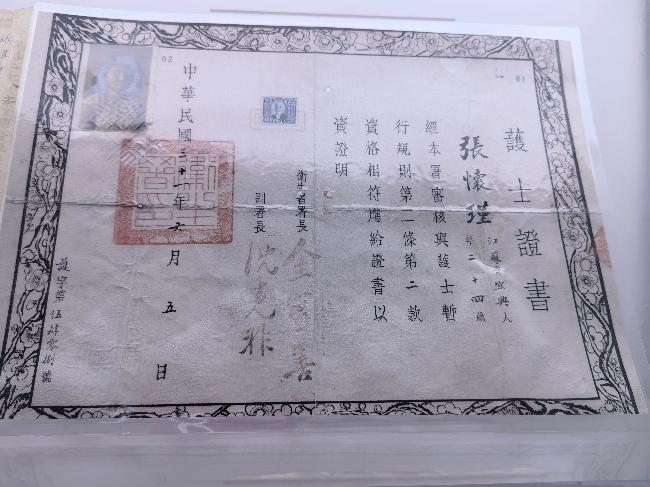 護士證書
張懷瑾
江蘇省宜興人
年二十四歲
經本署審核與護士暫
行規則第二條第二款
資格相符應給證書以
資證明
衛生署署長
金寶善
副署長
沈克非
中華民國三十一年六月五日
護字第伍肆零捌號
01
02